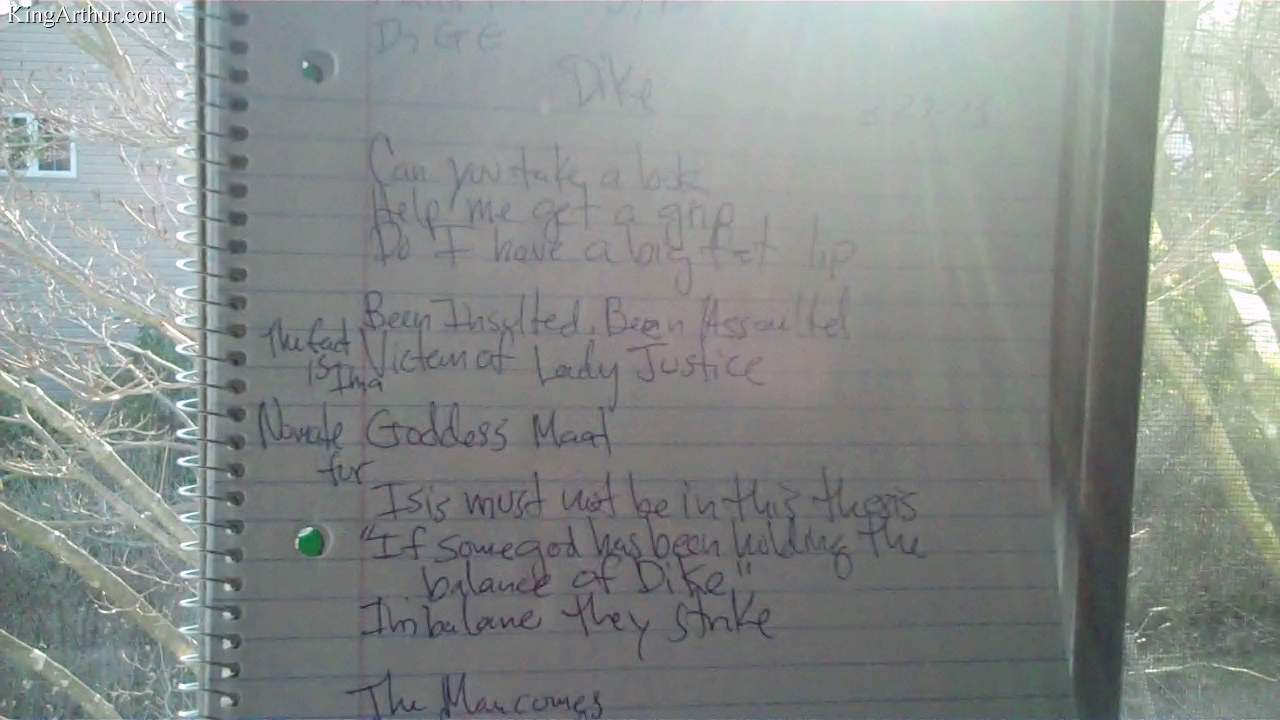 KingArthur.com
D, GE
Dike
Can you take a look
Help me get a grip
Do I have a big fat lip
Been Insulted, Been Assaulted
The fact
is Im a
Victem of Lady Justice
Goddess Maat
for
Isis must not be in this thesis
"If somegod has been holding the
balance of Dike"
Imbalance they strike
The Man comes